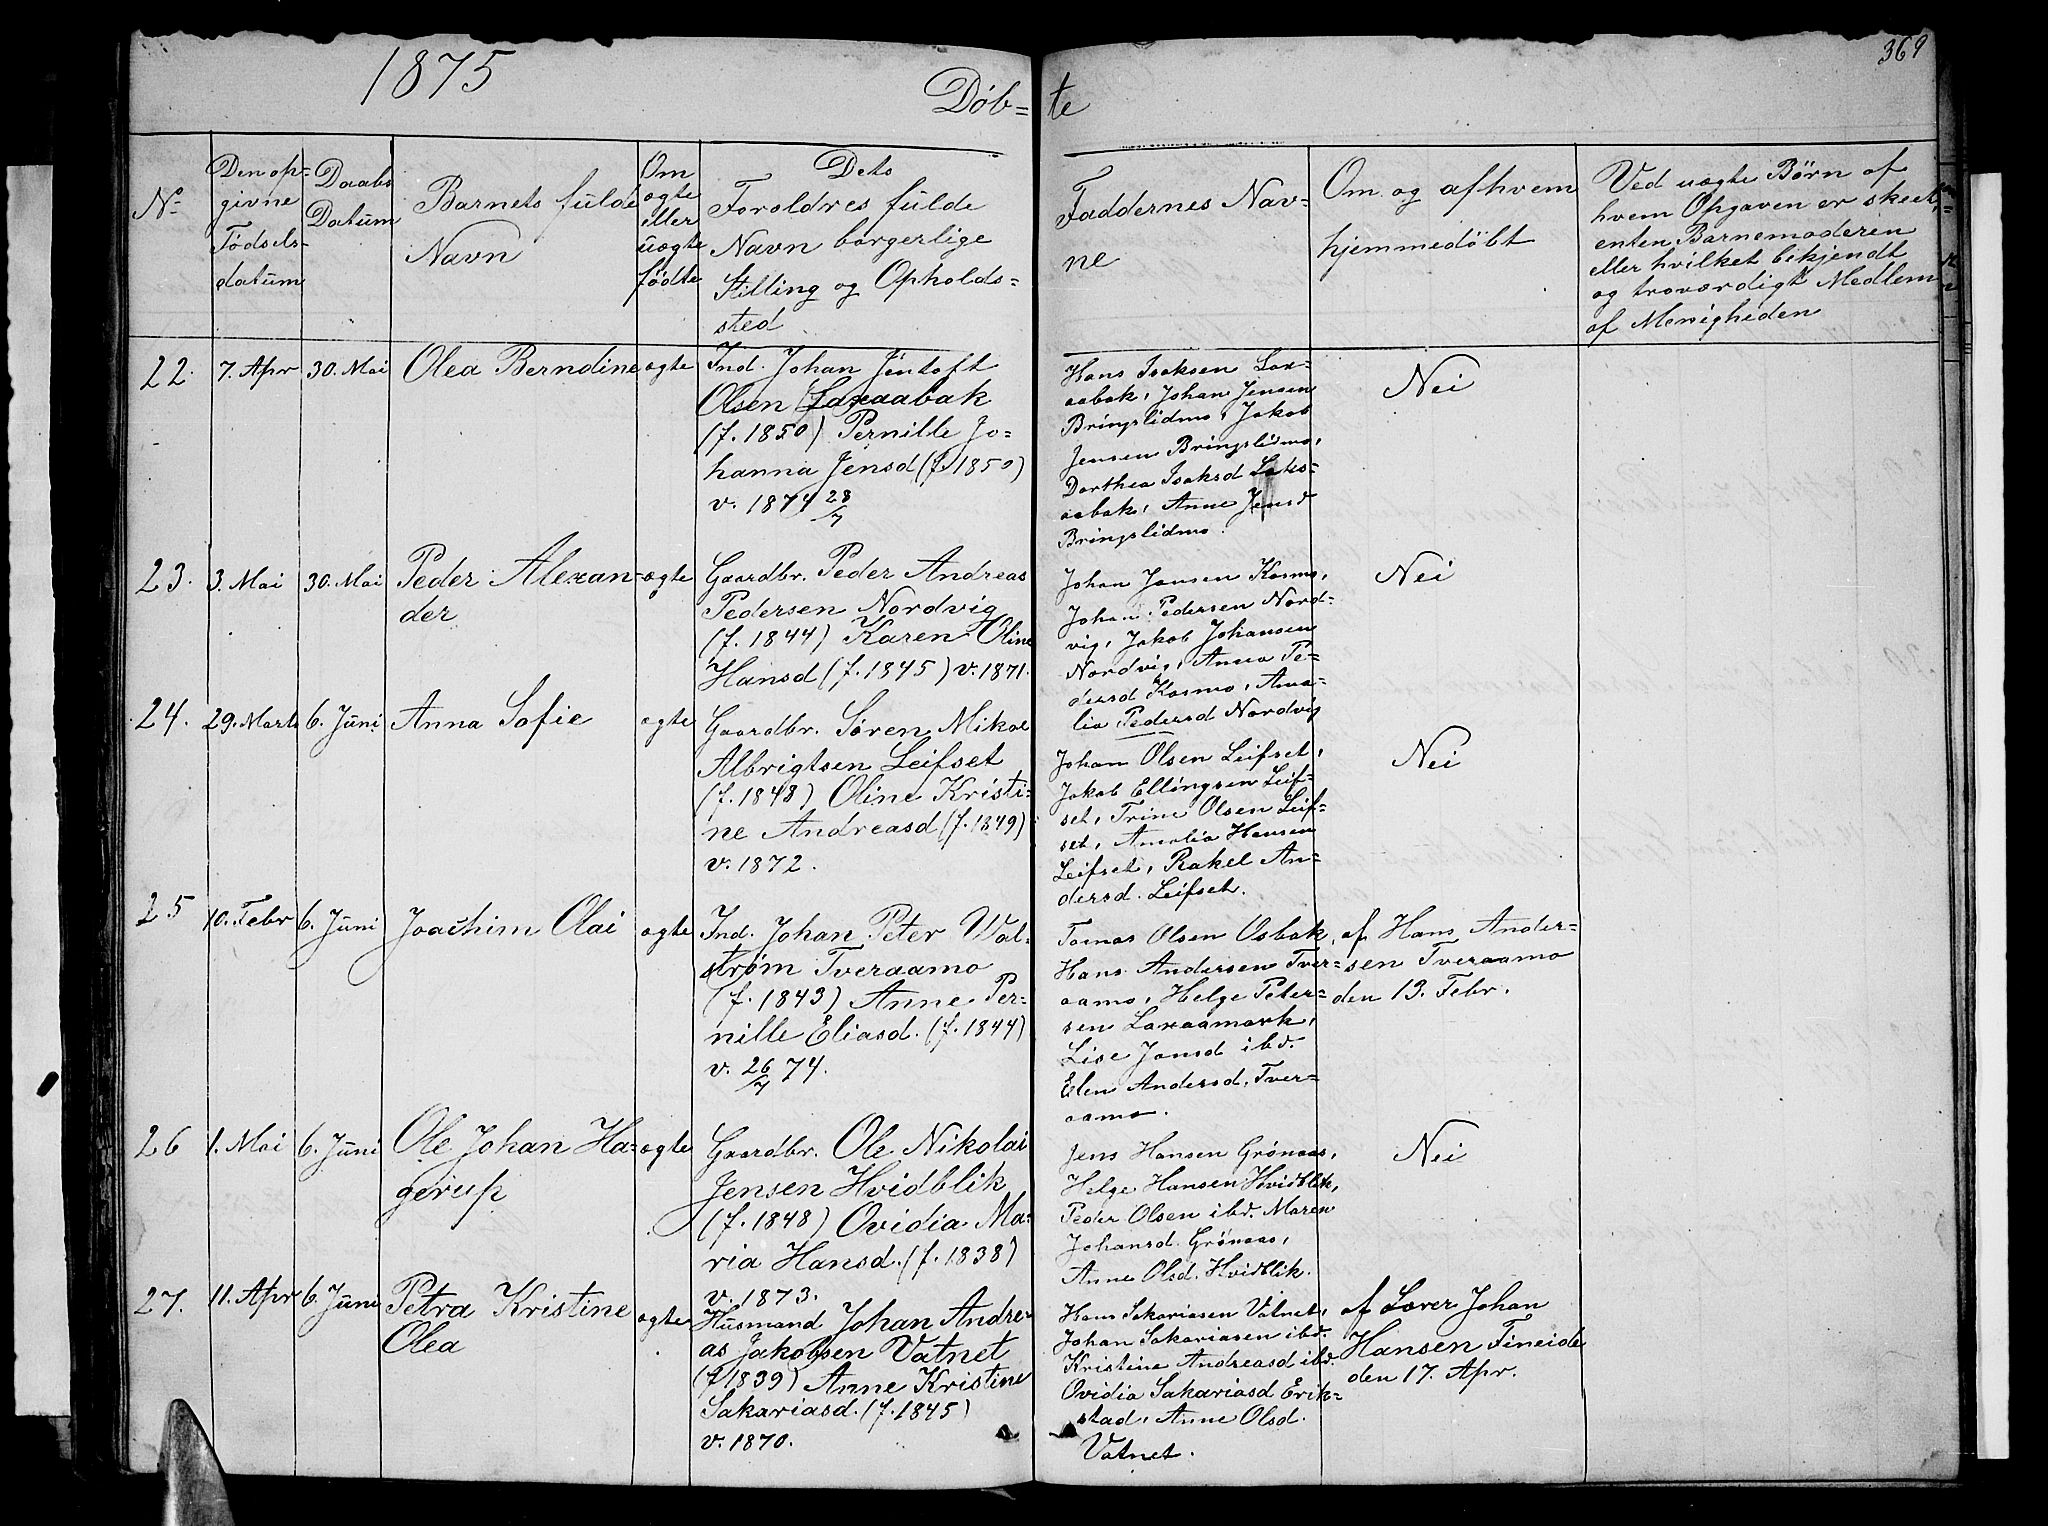 1875
Döb=
te
369
No
Den op=
givne
Födsels=
datum
Daabs
Datum
Barnets fulde
Navn
Om
ægte
eller
uægte
födte
Dets
Forældres fulde
Navn borgerlige
Stilling og Opholds=
sted
Faddernes Nav=
ne
Om og af hvem
hjemmedöbt
Ved uægte Børn af
hvem Opgaven er skeet,
enten Barnemoderen
eller hvilket bekjendt
og troværdigt Medlem
af Menigheden
22.
7. Apr
30. Mai
Olea Berndine
ægte
Ind. Johan Jentoft
Olsen Laxaabak
(f. 1850) Pernille Jo=
hanna Jensd (f. 1850)
v. 1874 28/7
Hans Isaksen Lax=
aabak, Johan Jensen
Bringslidmo, Jakob
Jensen Bringslidmo,
Dorthea Isaksd
aabak, Anne Jensd
Bringslidmo.
Nei
23.
3. Mai
30. Mai
Peder Alexan=
der
ægte
Gaardbr. Peder Andreas
Pedersen Nordvig
(f. 1844) Karen Oline
Hansd (f. 1845) v. 1871.
Johan Jansen Kosmo,
Johan Pedersen Nord=
vig, Jakob Johansen
Nordvig, Anna Pe=
dersd Kosmo, Ama=
lia Pedersd Nordvig
Nei
24.
29. Marts
6. Juni
Anna Sofie
ægte
Gaardbr. Søren Mikal
Albrigtsen Leifset
(f. 1848) Oline Kristi=
ne Andreasd (f. 1849)
v. 1872.
Johan Olsen Leifset,
Jakob Ellingsen Leif=
set, Trine Olsen Leif=
set, Amalia Hansen
Leifset, Rakel An=
dersd. Leifset.
Nei
25
10. Febr
6. Juni
Joachim Olai
ægte
Ind. Johan Peter Wal=
strøm Tveraamo
(f. 1843) Anne Per=
nille Eliasd. (f. 1844)
v. 26/7 74.
Tomas Olsen Osbak,
Hans Andersen Tver=
aamo, Helge Peter=
sen Laxaamark,
Lise Jonsd ibd.
Elen Andersd. Tver=
aamo.
af Hans Ander=
sen Tveraamo
den 13. Febr.
26
1. Mai
6. Juni
Ole Johan Ha=
gerup
ægte
Gaardbr. Ole Nikolai
Jensen Hvidblik
(f. 1848) Ovidia Ma=
ria Hansd. (f. 1838)
v. 1873.
Jens Hansen Grønaas,
Helge Hansen Hvidblik,
Peder Olsen ibd. Maren
Johansd. Grønaas,
Anne Olsd. Hvidblik.
Nei
27.
11. Apr
6. Juni
Petra Kristine
Olea
ægte
Husmand Johan Andre=
as Jakobsen Vatnet
(f 1839) Anne Kristine
Sakariasd. (f. 1845)
v. 1870.
Hans Sakariasen Vatnet,
Johan Sakariasen ibd.
Kristine Andreasd ibd.
Ovidia Sakariasd Erik=
stad, Anne Olsd.
Vatnet.
af Lærer Johan
Hansen Fineide
den 17. Apr.